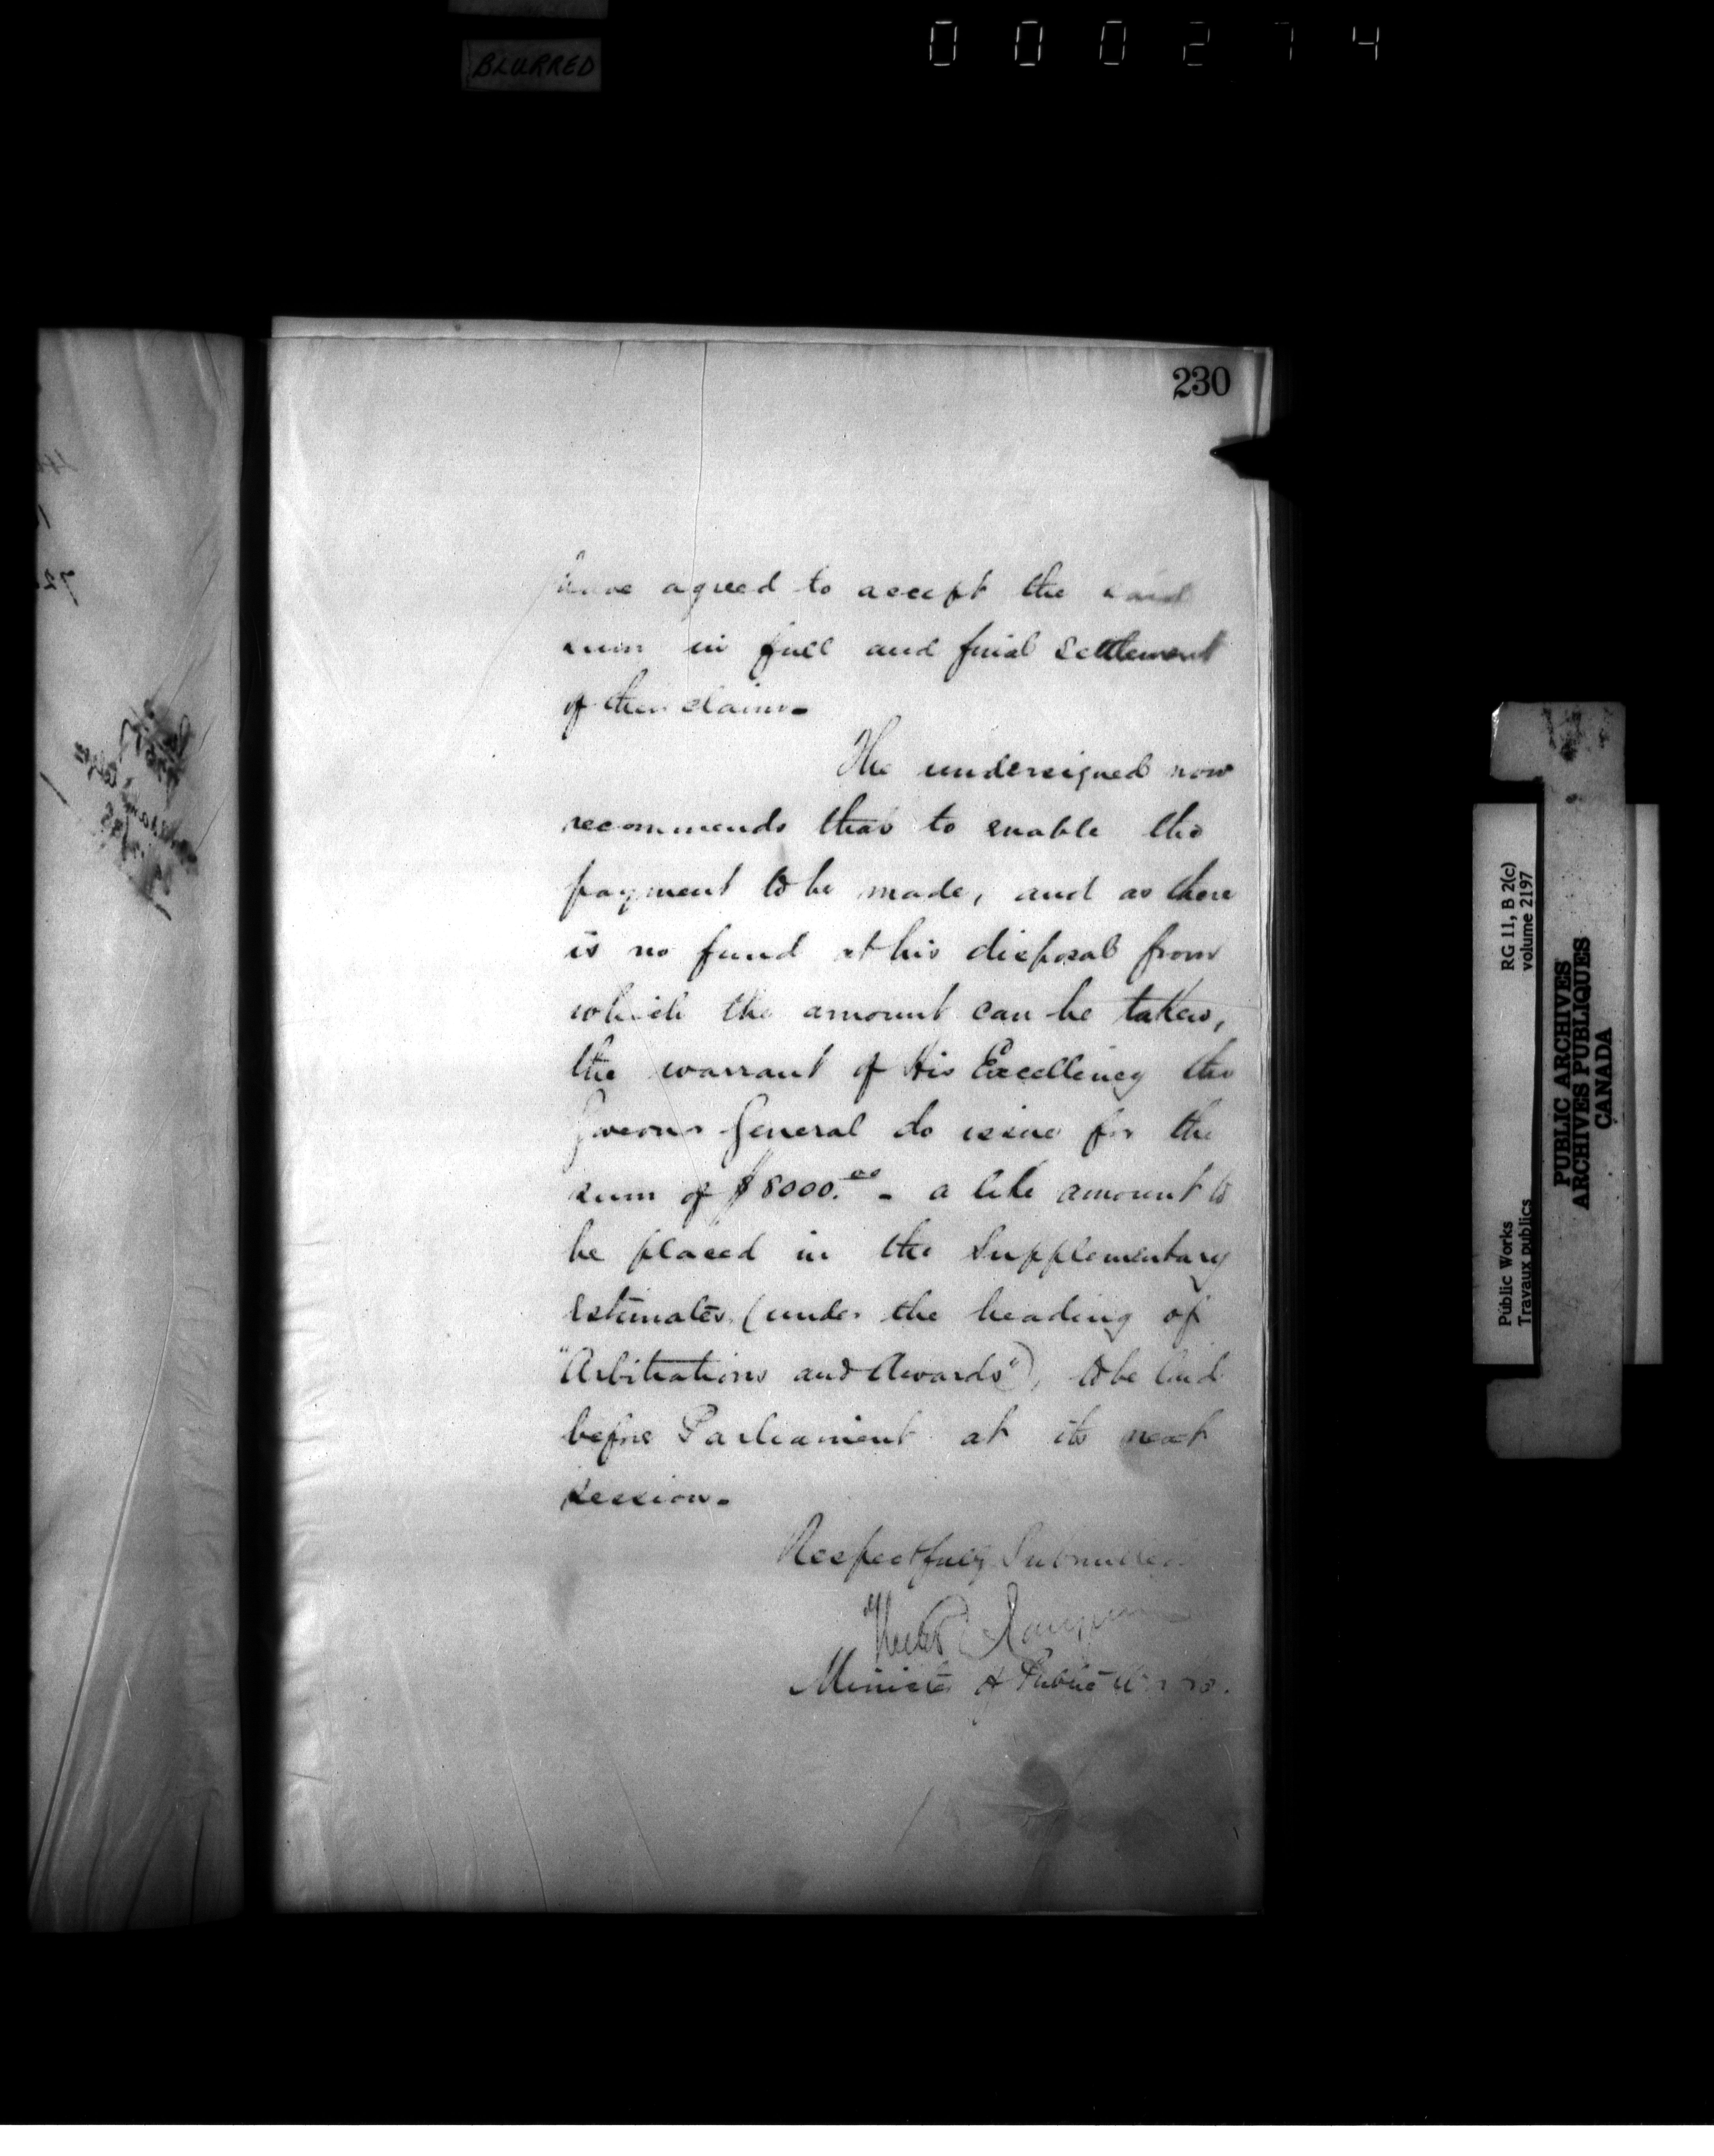 BLURRED
000274
230
have agreed to accept the said
sum in full and final settlement
of their claims.
The undersigned now
recommends that to enable the
payment to be made, and as there
is no fund at his disposal from
which the amount can be taken,
the warrant of His Excellency the
Governor General do issue for the
sum of $8000.00 - a like amount to
be placed in the Supplementary
Estimates, (under the heading of
"Arbitrations and Awards"), to be laid
before Parliament at its next
session.
Respectfully Submitted
Hector L. Langevin
Minister of Public Works.
RG 11, B 2(c)
volume 2197
Public Works
Travaux publics
PUBLIC ARCHIVES
ARCHIVES PUBLIQUES
CANADA